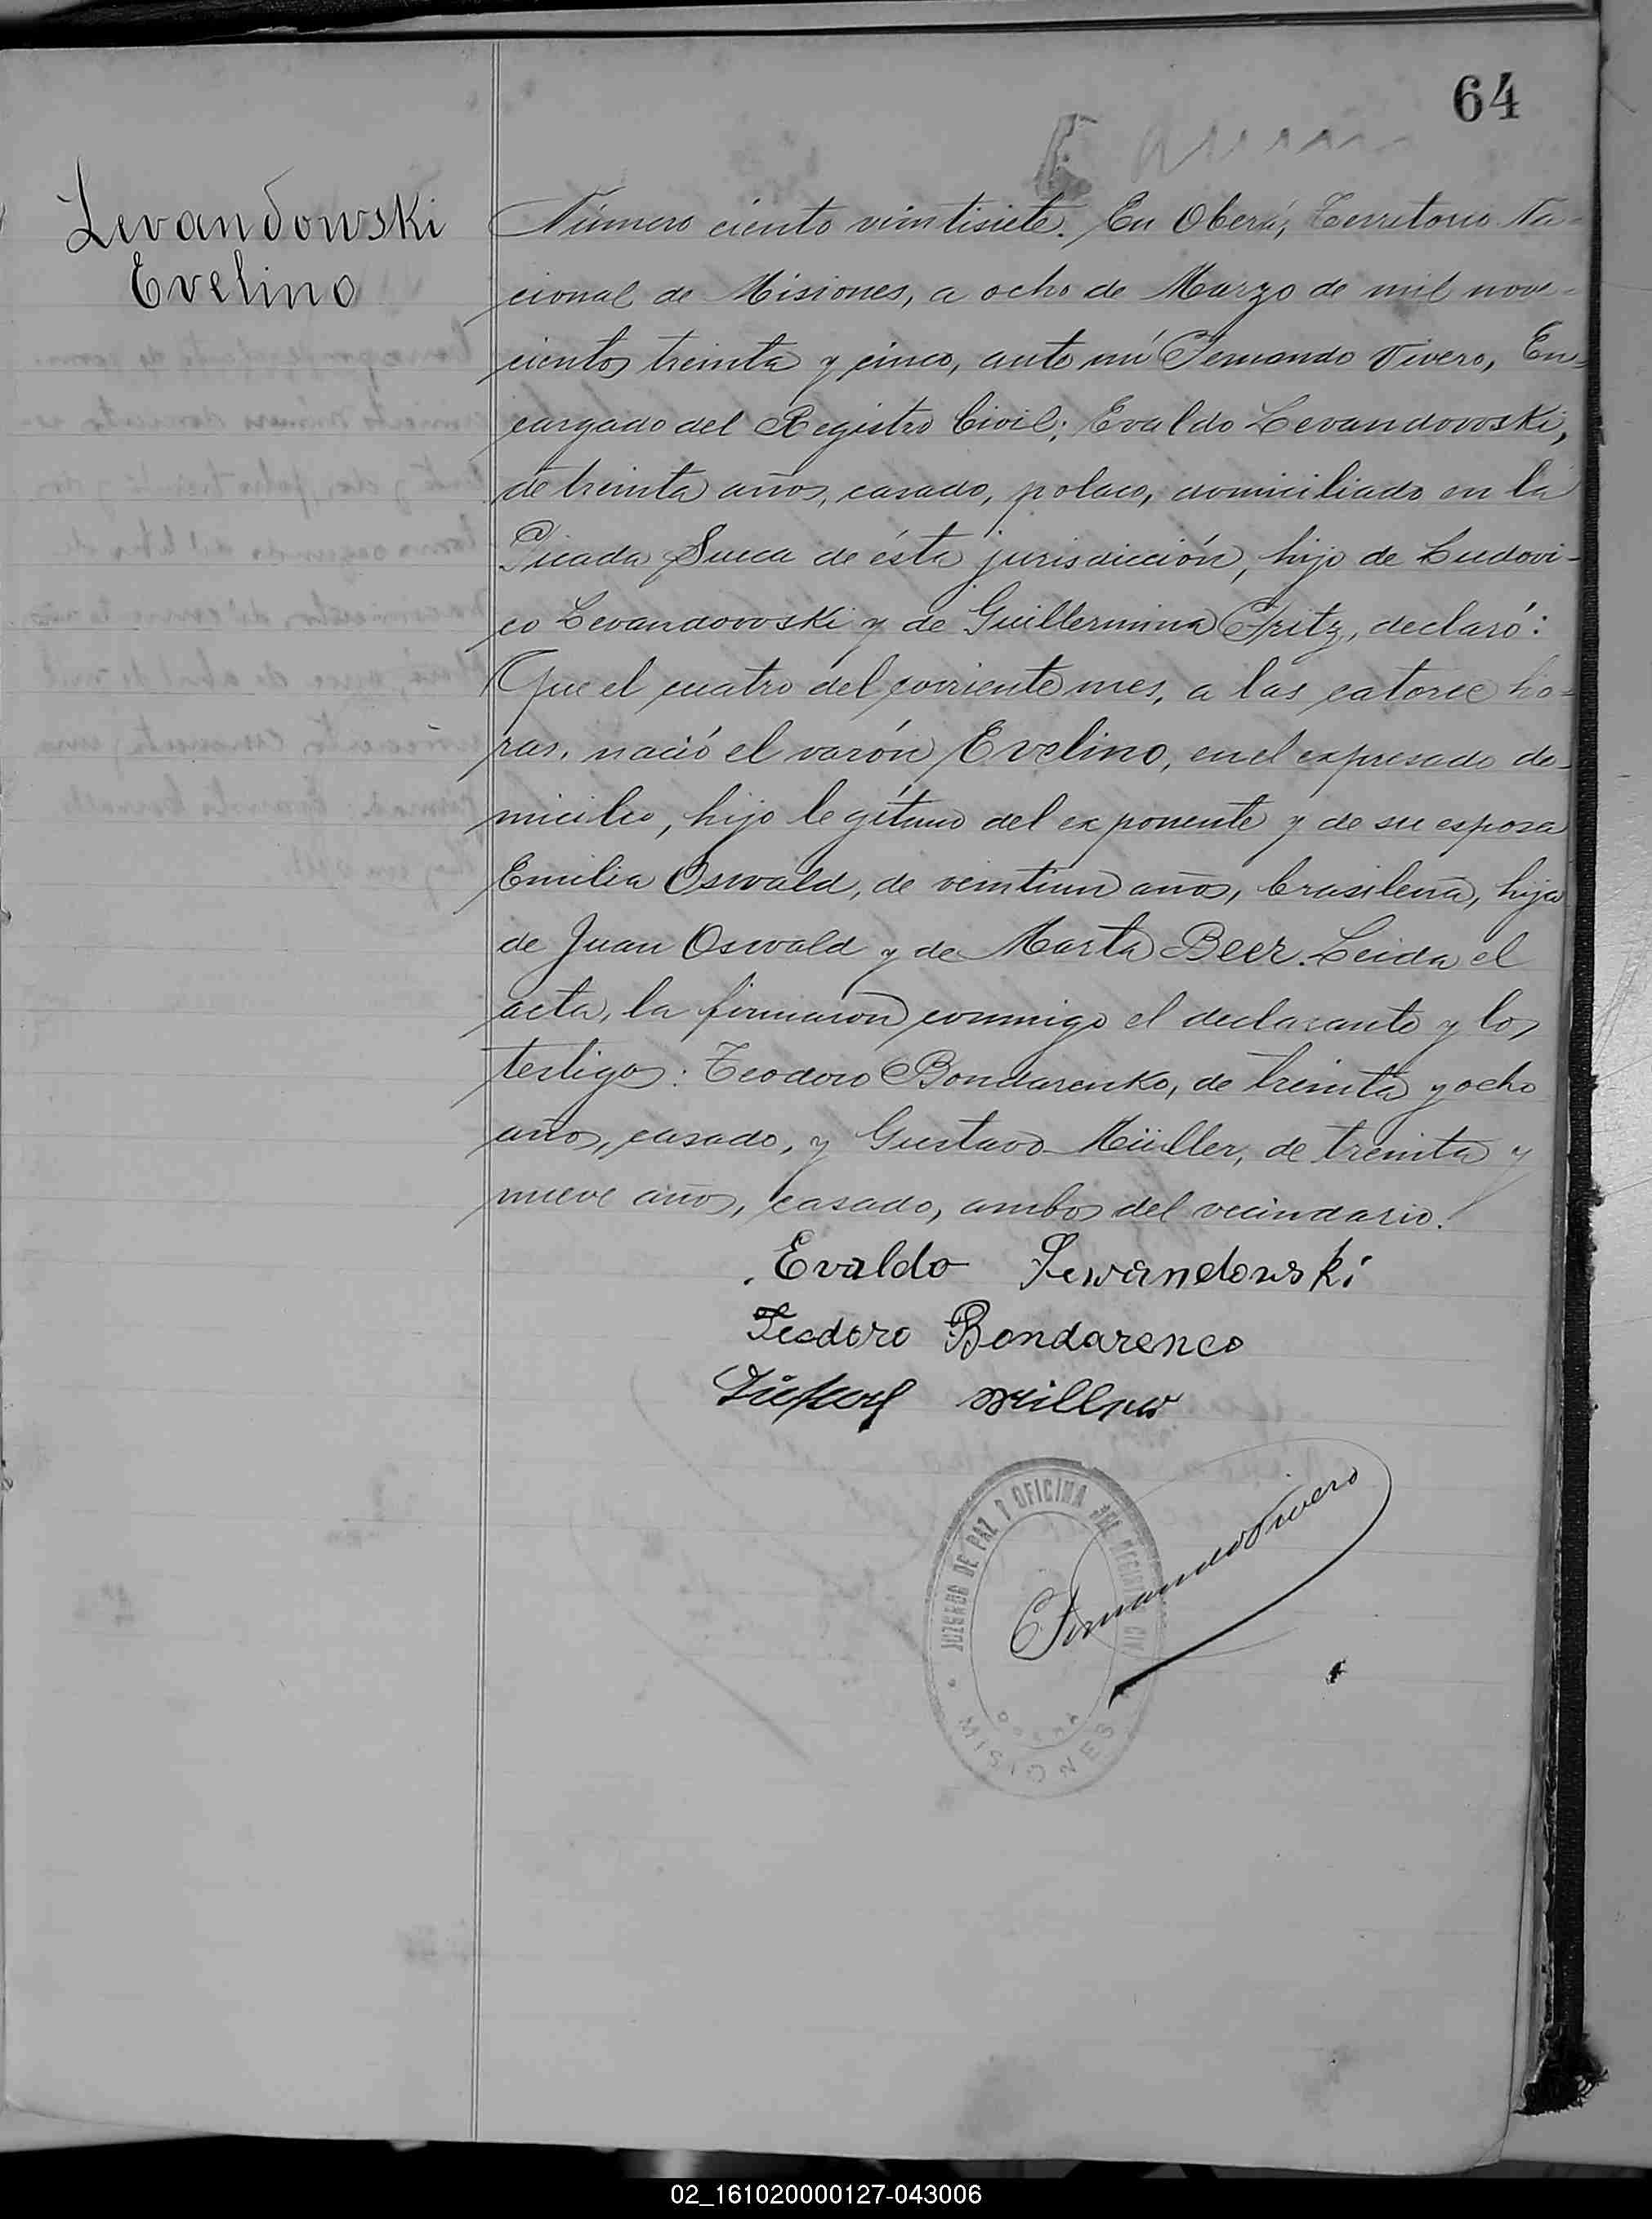 64
Levandowski
Evelino
Número ciento vintisiete. En Oberá, Territorio Na-
cional de Misiones, a ocho de Marzo de mil nove-
cientos treinta y cinco, ante mí Fernando Vivero, En-
cargado del Registro Civil; Evaldo Levandowski,
de treinta años, casado, polaco, domiciliado en la
Picada Sueca de ésta jurisdicción, hijo de Ludovi-
co Levandowski y de Guillermina Fritz, declaró:
Que el cuatro del corriente mes, a las catorce ho-
ras, nació el varón Evelino, en el expresado do-
micilio, hijo legítimo del exponente y de su esposa
Emilia Oswald, de veintiun años, brasileña, hija
de Juan Oswald y de Marta Beer. Leida el
acta, la firmaron conmigo el declarante y los
testigos: Teodoro Bondarenko, de treinta y ocho
años, casado, y Gustavo Müller, de treinta y
nueve años, casado, ambos del vecindario.
Evaldo Lewandowski
Teodoro Bondarenco
Müller
Fernando Vivero
JUZGADO DE PAZ Y OFICINA DEL REGISTRO CIVIL
OBERA
MISIONES
02_161020000127-043006